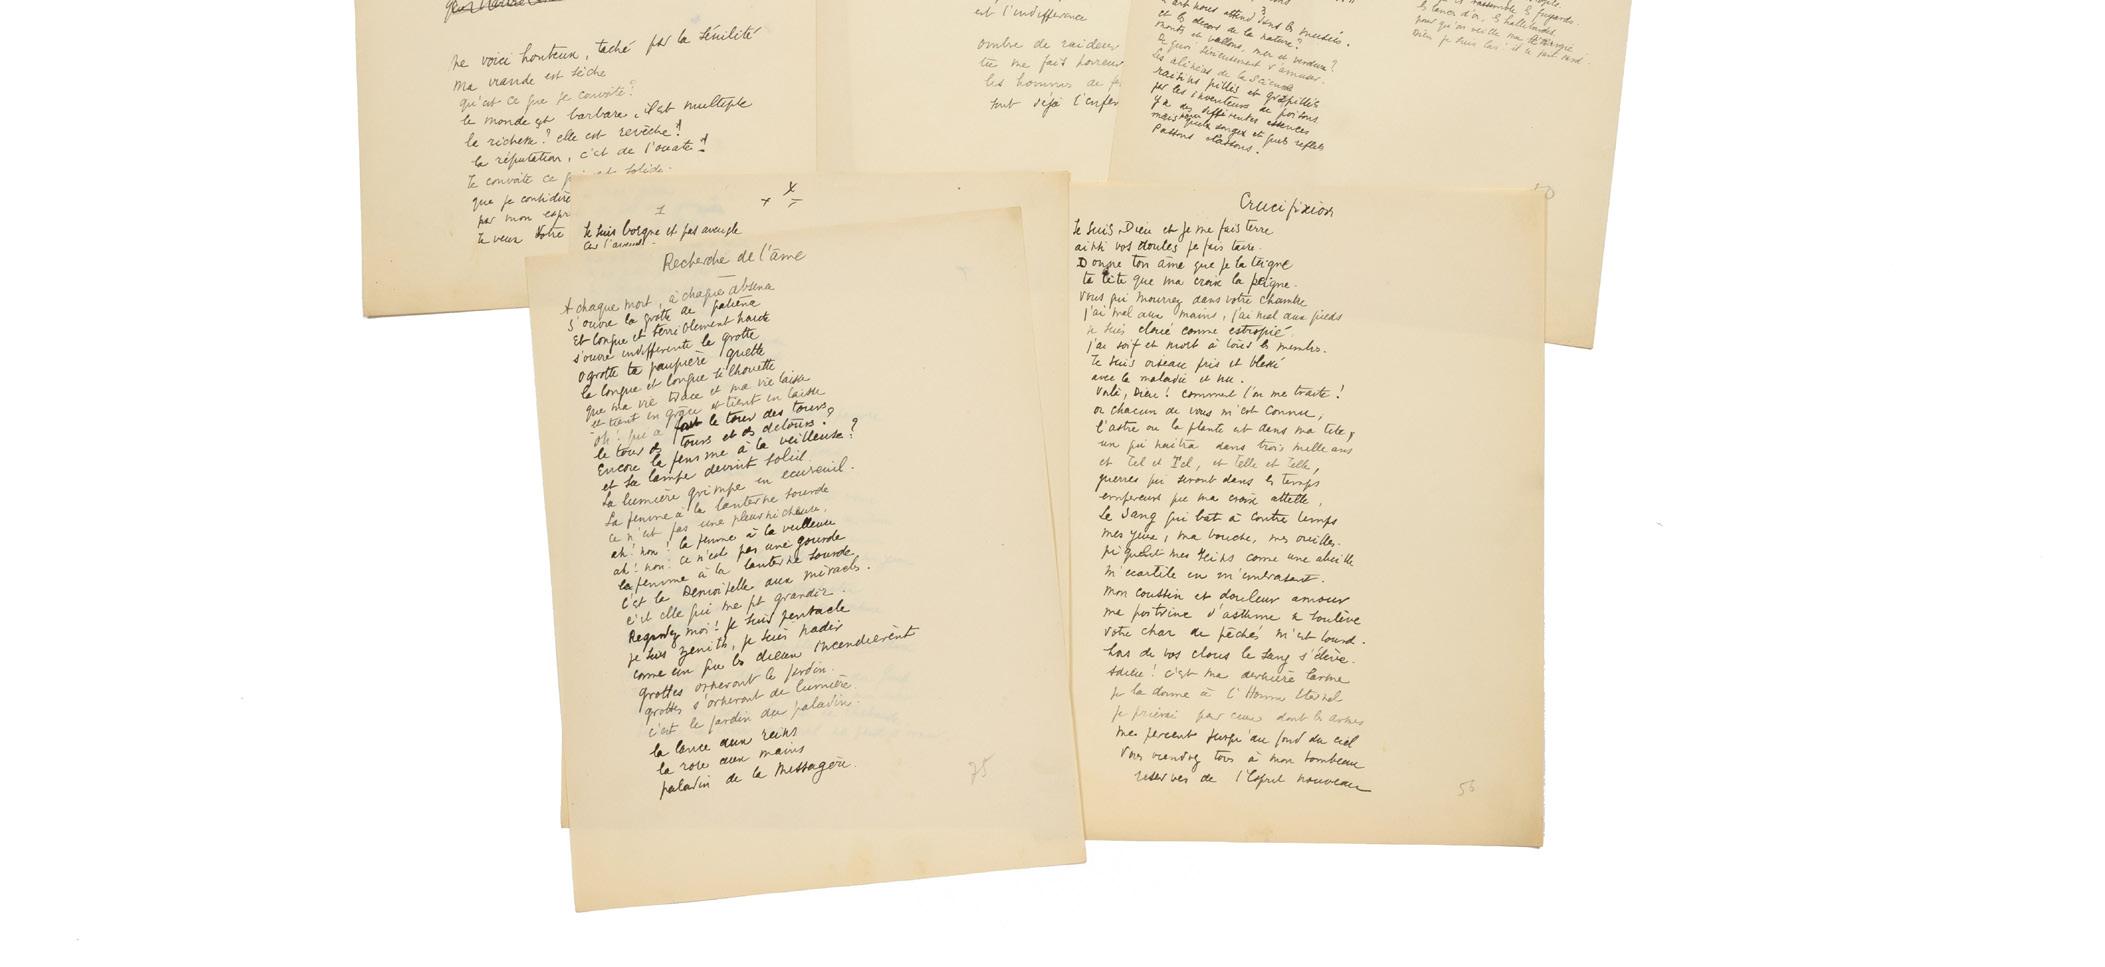 me voici honteux, taché par la sénilité
ma viande est sèche
qu'est ce que je convoite?
le monde est barbare, il est multiple
la richesse? elle est revêche!
la réputation, c'est de l'ouate!
Je convoite ce solide.
que je considère
par mon esprit
Je veux votre
est l'indifférence
ombre de raideur
tu me fais horreur
les hommes de
tout déjà l'enfer
art nous attend dans les musées.
et les décors de la nature?
monts et vallons, mer et verdure?
De quoi sérieusement s'amuser.
les alinéas de la Science
raisins pillés et grapillés
par les inventeurs de poisons
y a des différentes essences
mais quels songes et quels reflets
Passons
rassemble les fuyards.
les lances d'or, les hallebardes
pour qu'on veille ma
Dieu je suis las! il se fait tard.
10
1
Je suis borgne et pas aveugle
Recherche de l'âme
A chaque mort, à chaque absence
S'ouvre la grotte de patience
Et longue et terriblement haute
s'ouvre indifférente la grotte
O grotte ta paupière guette
la longue et longue silhouette
que ma vie trace et ma vie laisse
et tient en grâce et tient en laisse
oh! qui a fait le tour des tours
le tour des tours et des détours?
Encore la femme à la veilleuse?
et sa lampe devint soleil.
La lumière grimpe en écureuil.
La femme à la lanterne sourde
ce n'est pas une pleurnicheuse,
ah! non! la femme à la veilleuse
ah! non! ce n'est pas une gourde
la femme à la lanterne sourde
C'est la Demoiselle aux miracles.
c'est elle qui me fit grandir.
Regardez moi! je suis pentacle
je suis zénith, je suis nadir
comme un que les dieux incendièrent
grottes orneront le jardin.
grottes s'orneront de lumière.
c'est le jardin du paladin.
la lance aux reins
la rose aux mains
paladin de la Messagère.
75
Crucifixion
Je suis Dieu et je me fais terre
ainsi vos doutes je fais taire.
Donne ton âme que je la teigne
ta tête que ma croix la peigne.
Vous qui mourrez dans votre chambre
j'ai mal aux mains, j'ai mal aux pieds
je suis cloué comme estropié.
j'ai soif et mort à tous les membres.
Je suis oiseau pris et blessé
avec la maladie et nu.
Voilà, Dieu! comment l'on me traite!
or chacun de vous m'est connu,
l'astre ou la plante est dans ma tête,
un qui naîtra dans trois mille ans
et Tel et Tel, et Telle et Telle,
guerres qui seront dans les temps
empereurs que ma croix attelle,
Le Sang qui bat à contre temps
mes yeux, ma bouche, mes oreilles.
piquent mes reins comme une abeille
m'écartèle en m'embrasant.
mon coussin et douleur amour
ma poitrine d'asthme se soulève
Votre char de péchés m'est lourd.
hors de vos clous le sang s'élève.
adieu! c'est ma dernière larme
je la donne à l'Homme Eternel
je prierai pour ceux dont les armes
me percent jusqu'au fond du ciel
Vous viendrez tous à mon tombeau
réserves de l'Esprit nouveau
56